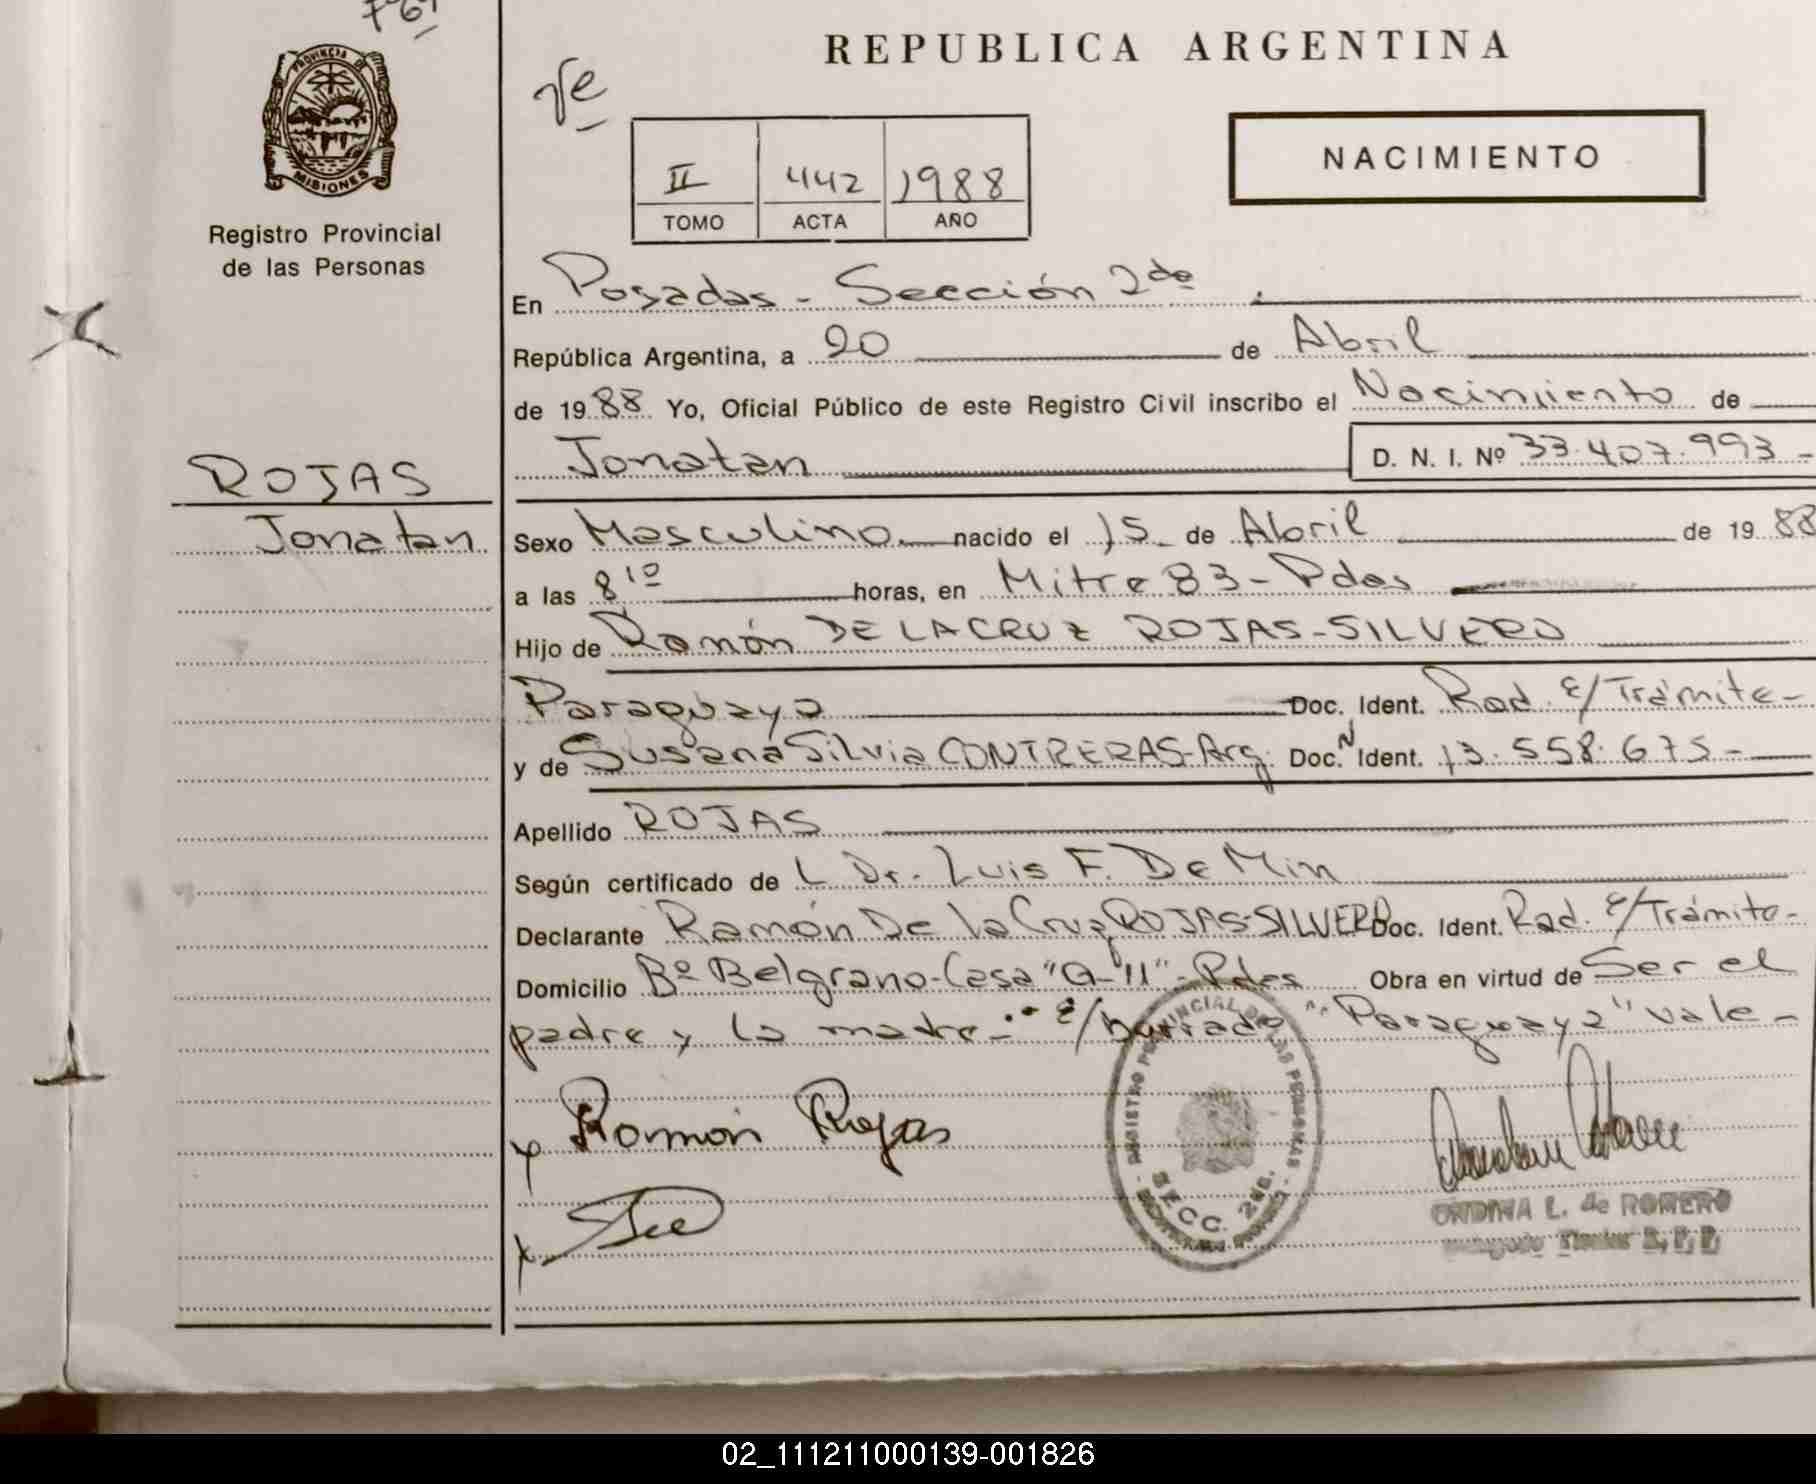 REPUBLICA ARGENTINA
PROVINCIA DE
MISIONES
Registro Provincial
de las Personas
II 442 1988
TOMO ACTA AÑO
NACIMIENTO
En Posadas - Sección 2da
República Argentina, a 20 de Abril
de 1988 Yo, Oficial Público de este Registro Civil inscribo el Nacimiento de
Jonatan D. N. I. Nº 33.407.993 -
ROJAS
Jonatan
Sexo Masculino nacido el 15 de Abril de 1988
a las 8 10 horas, en Mitre 83 - Pdas
Hijo de Ramón DE LA CRUZ ROJAS-SILVERO
Paraguaya Doc. Ident. Rad. E/Trámite -
y de Susana Silvia CONTRERAS - Arg. Doc. N Ident. 13.558.675 -
Apellido ROJAS
Según certificado de L Dr. Luis F. De Min
Declarante Ramón De la Cruz ROJAS-SILVERO Doc. Ident. Rad. E/Trámite -
Domicilio Bº Belgrano - Casa "G-11" - Pdas Obra en virtud de Ser el
padre y la madre - E/ borrado "Paraguaya" vale -
Ramon Rojas
REGISTRO PROVINCIAL DE LAS PERSONAS
SECC. 2da.
ONDINA L. de ROMERO
Delegado Titular R. P. P.
02_111211000139-001826